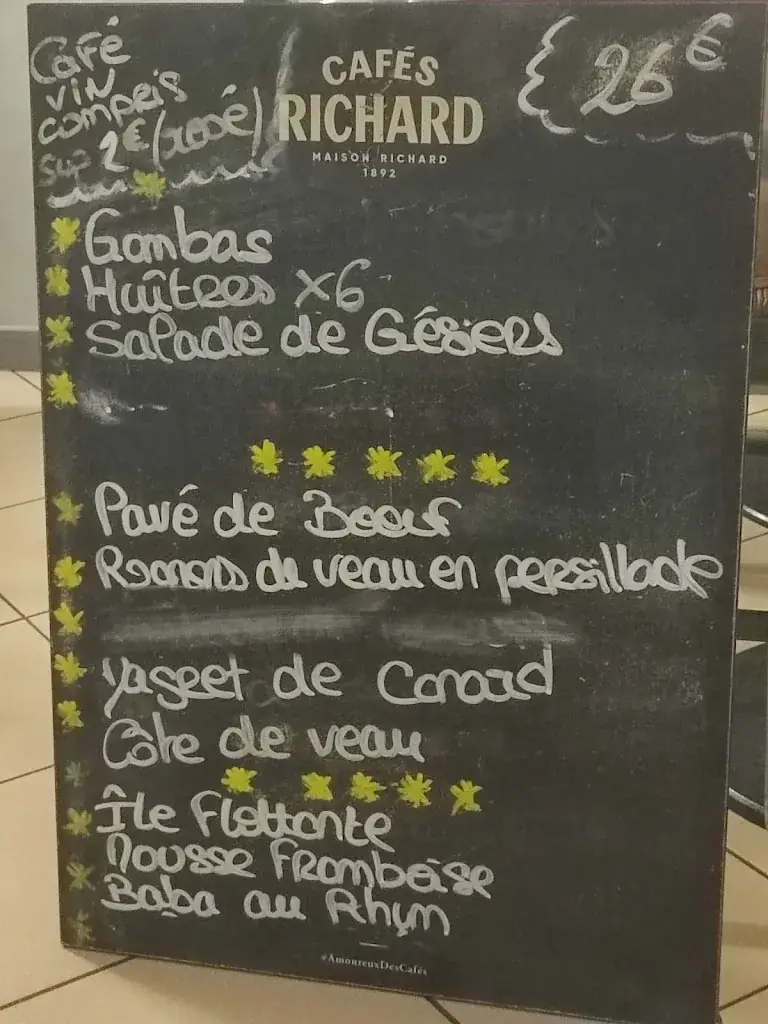 Café
vin
compris
sup 2€ (rosé)
CAFÉS
RICHARD
MAISON RICHARD
1892
26€
Gambas
Huîtres x6
Salade de Gésiers
Pavé de Boeuf
Rognons de veau en persillade
de Canard
Côte de veau
Île Flottante
Mousse Framboise
Baba au Rhum
#AmoureuxDesCafés